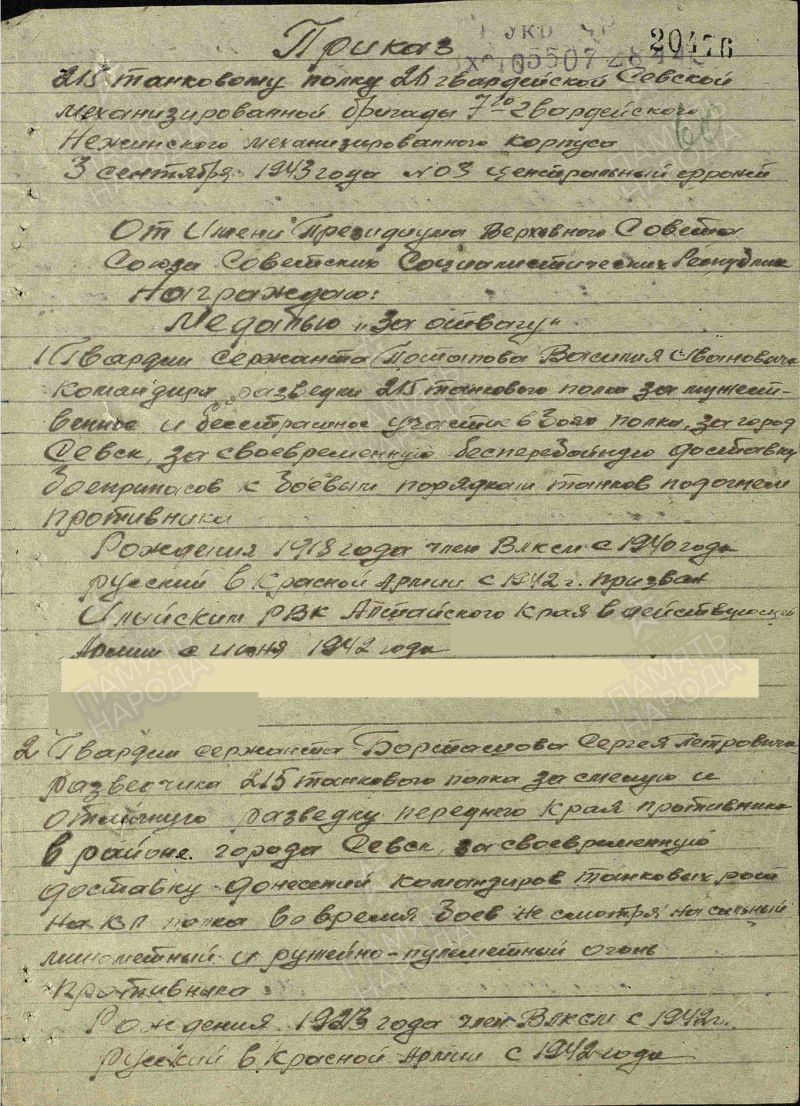 Приказ
20476
215 танковому полку 26 гвардейской Севской
механизированной бригады 7го гвардейского
Нежинского механизированного корпуса
3 сентября 1943 года №03 Центральный фронт
От Имени Президиума Верховного Совета
Союза Советских Социалистических Республик
Награждаю:
Медалью „За отвагу“
1 Гвардии сержанта Потапова Василия Ивановича
Командира разведки 215 танкового полка за мужест-
венное и бесстрашное участие в боях полка, за город
Севск, за своевременную бесперебойную доставку
боеприпасов к боевым порядкам танков под огнем
противника
Рождения 1918 года член ВЛКСМ с 1940 года
русский в Красной Армии с 1942 г. призван
РВК Алтайского Края в действующей
Армии с июня 1942 года
2 Гвардии сержанта Сергея Петровича
разведчика 215 танкового полка за смелую и
отличную разведку переднего края противника
в районе города Севск, за своевременную
доставку донесений командиров танковых рот
на КП полка во время боев не смотря на сильный
минометный и ружейно-пулеметный огонь
противника
Рождения 1923 года член ВЛКСМ с 1942 г.
русский в Красной Армии с 1942 года
ПАМЯТЬ
НАРОДА